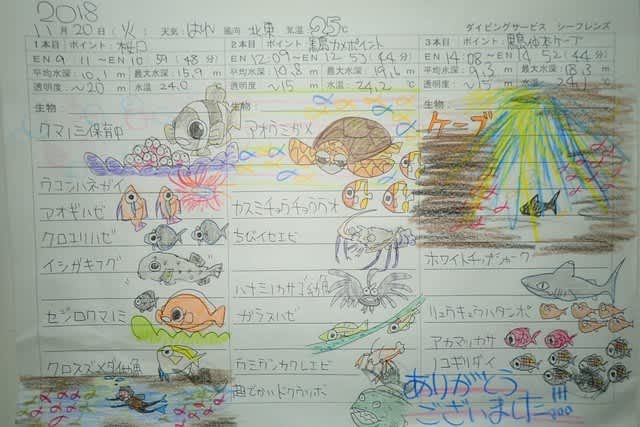 2018
11月20日(火) 天気:はれ 風向 北東 気温:25℃ ダイビングサービス シーフレンズ
1本目 ポイント:桜口
EN 9:11~EN 10:59(48分)
平均水深:10.1m 最大水深:15.9m
透明度:~20m 水温:24.0
生物:
クマノミ保育中
ウコンハネガイ
アオギハゼ
クロエリハゼ
イシガキフグ
セジロクマノミ
クロスズメダイ幼魚
2本目 ポイント:黒島カメポイント
EN 12:09~EN 12:53(44分)
平均水深:10.8m 最大水深:19.6m
透明度:~15m 水温:24.2℃
生物:
アオウミガメ
カスミチョウチョウウオ
ちびイセエビ
ハナミノカサゴ幼魚
ガラスハゼ
ウミウシカクレエビ
超でかいドクウツボ
3本目 ポイント:黒島
EN 14:08~EN 14:52(44分)
平均水深:9.3m 最大水深:18.3m
透明度:~15m 水温:24.1℃
生物:
ケーブ
ホワイトチップシャーク
リュウキュウハタンポ
アカマツカサ
ノコギリダイ
ありがとう
ございました!!!